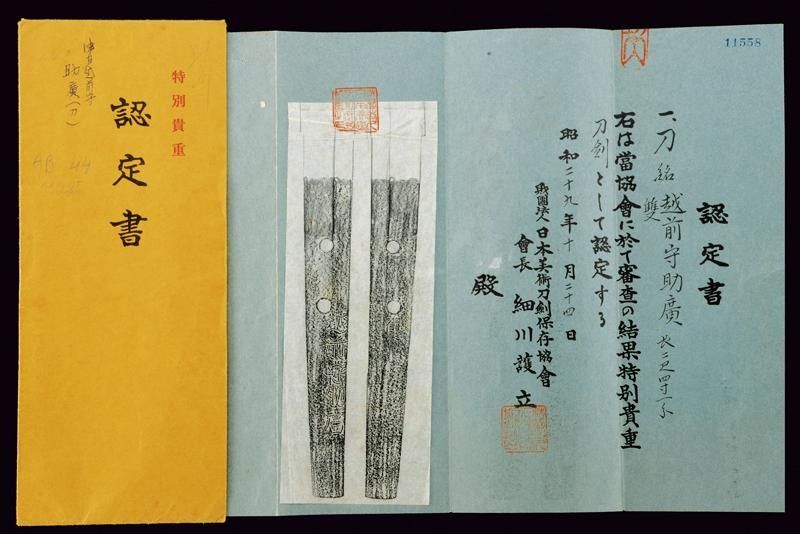 特別貴重
認定書
助廣(刀)
11558
認定書
一、刀 銘 越前守助廣 長二尺四寸一分
雙
右は當協會に於て審査の結果特別貴重
刀剣として認定する
昭和二十九年十月二十四日
財團法人日本美術刀剣保存協會
會長 細川護立
殿